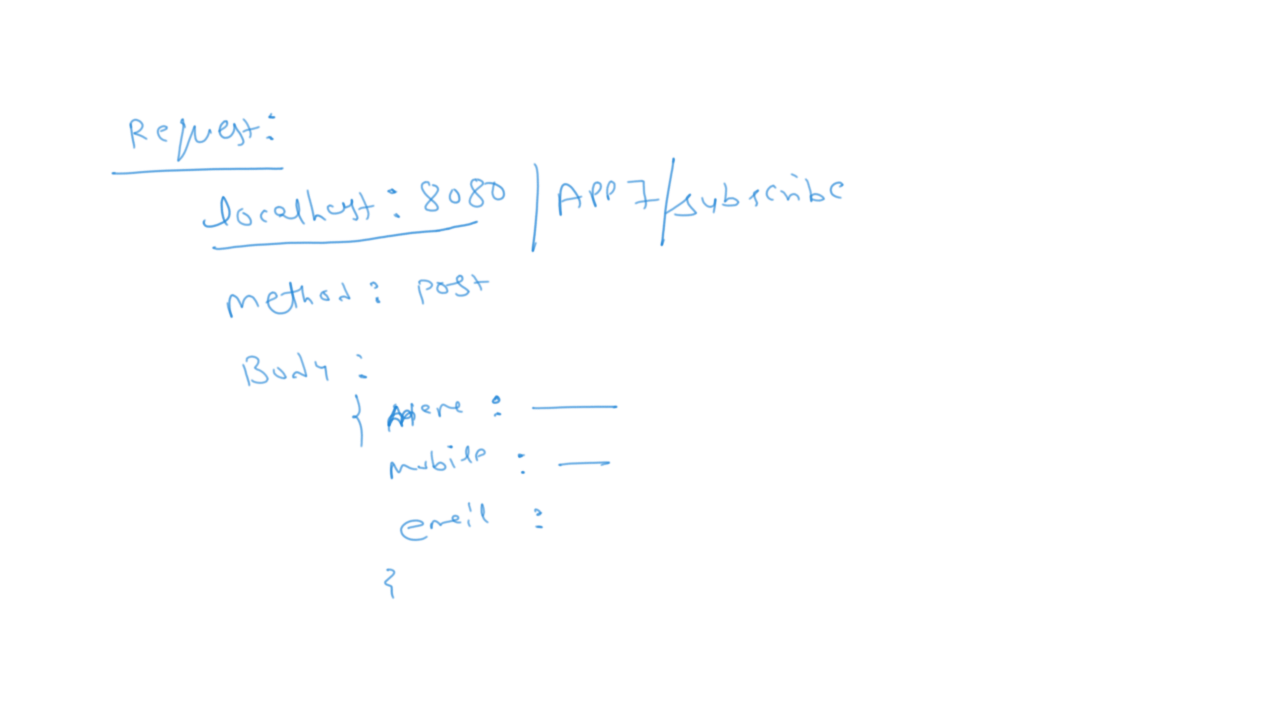 Request:
localhost: 8080 / APP7/subscribe
method: post
Body:
{ :
mobile :
email :
}